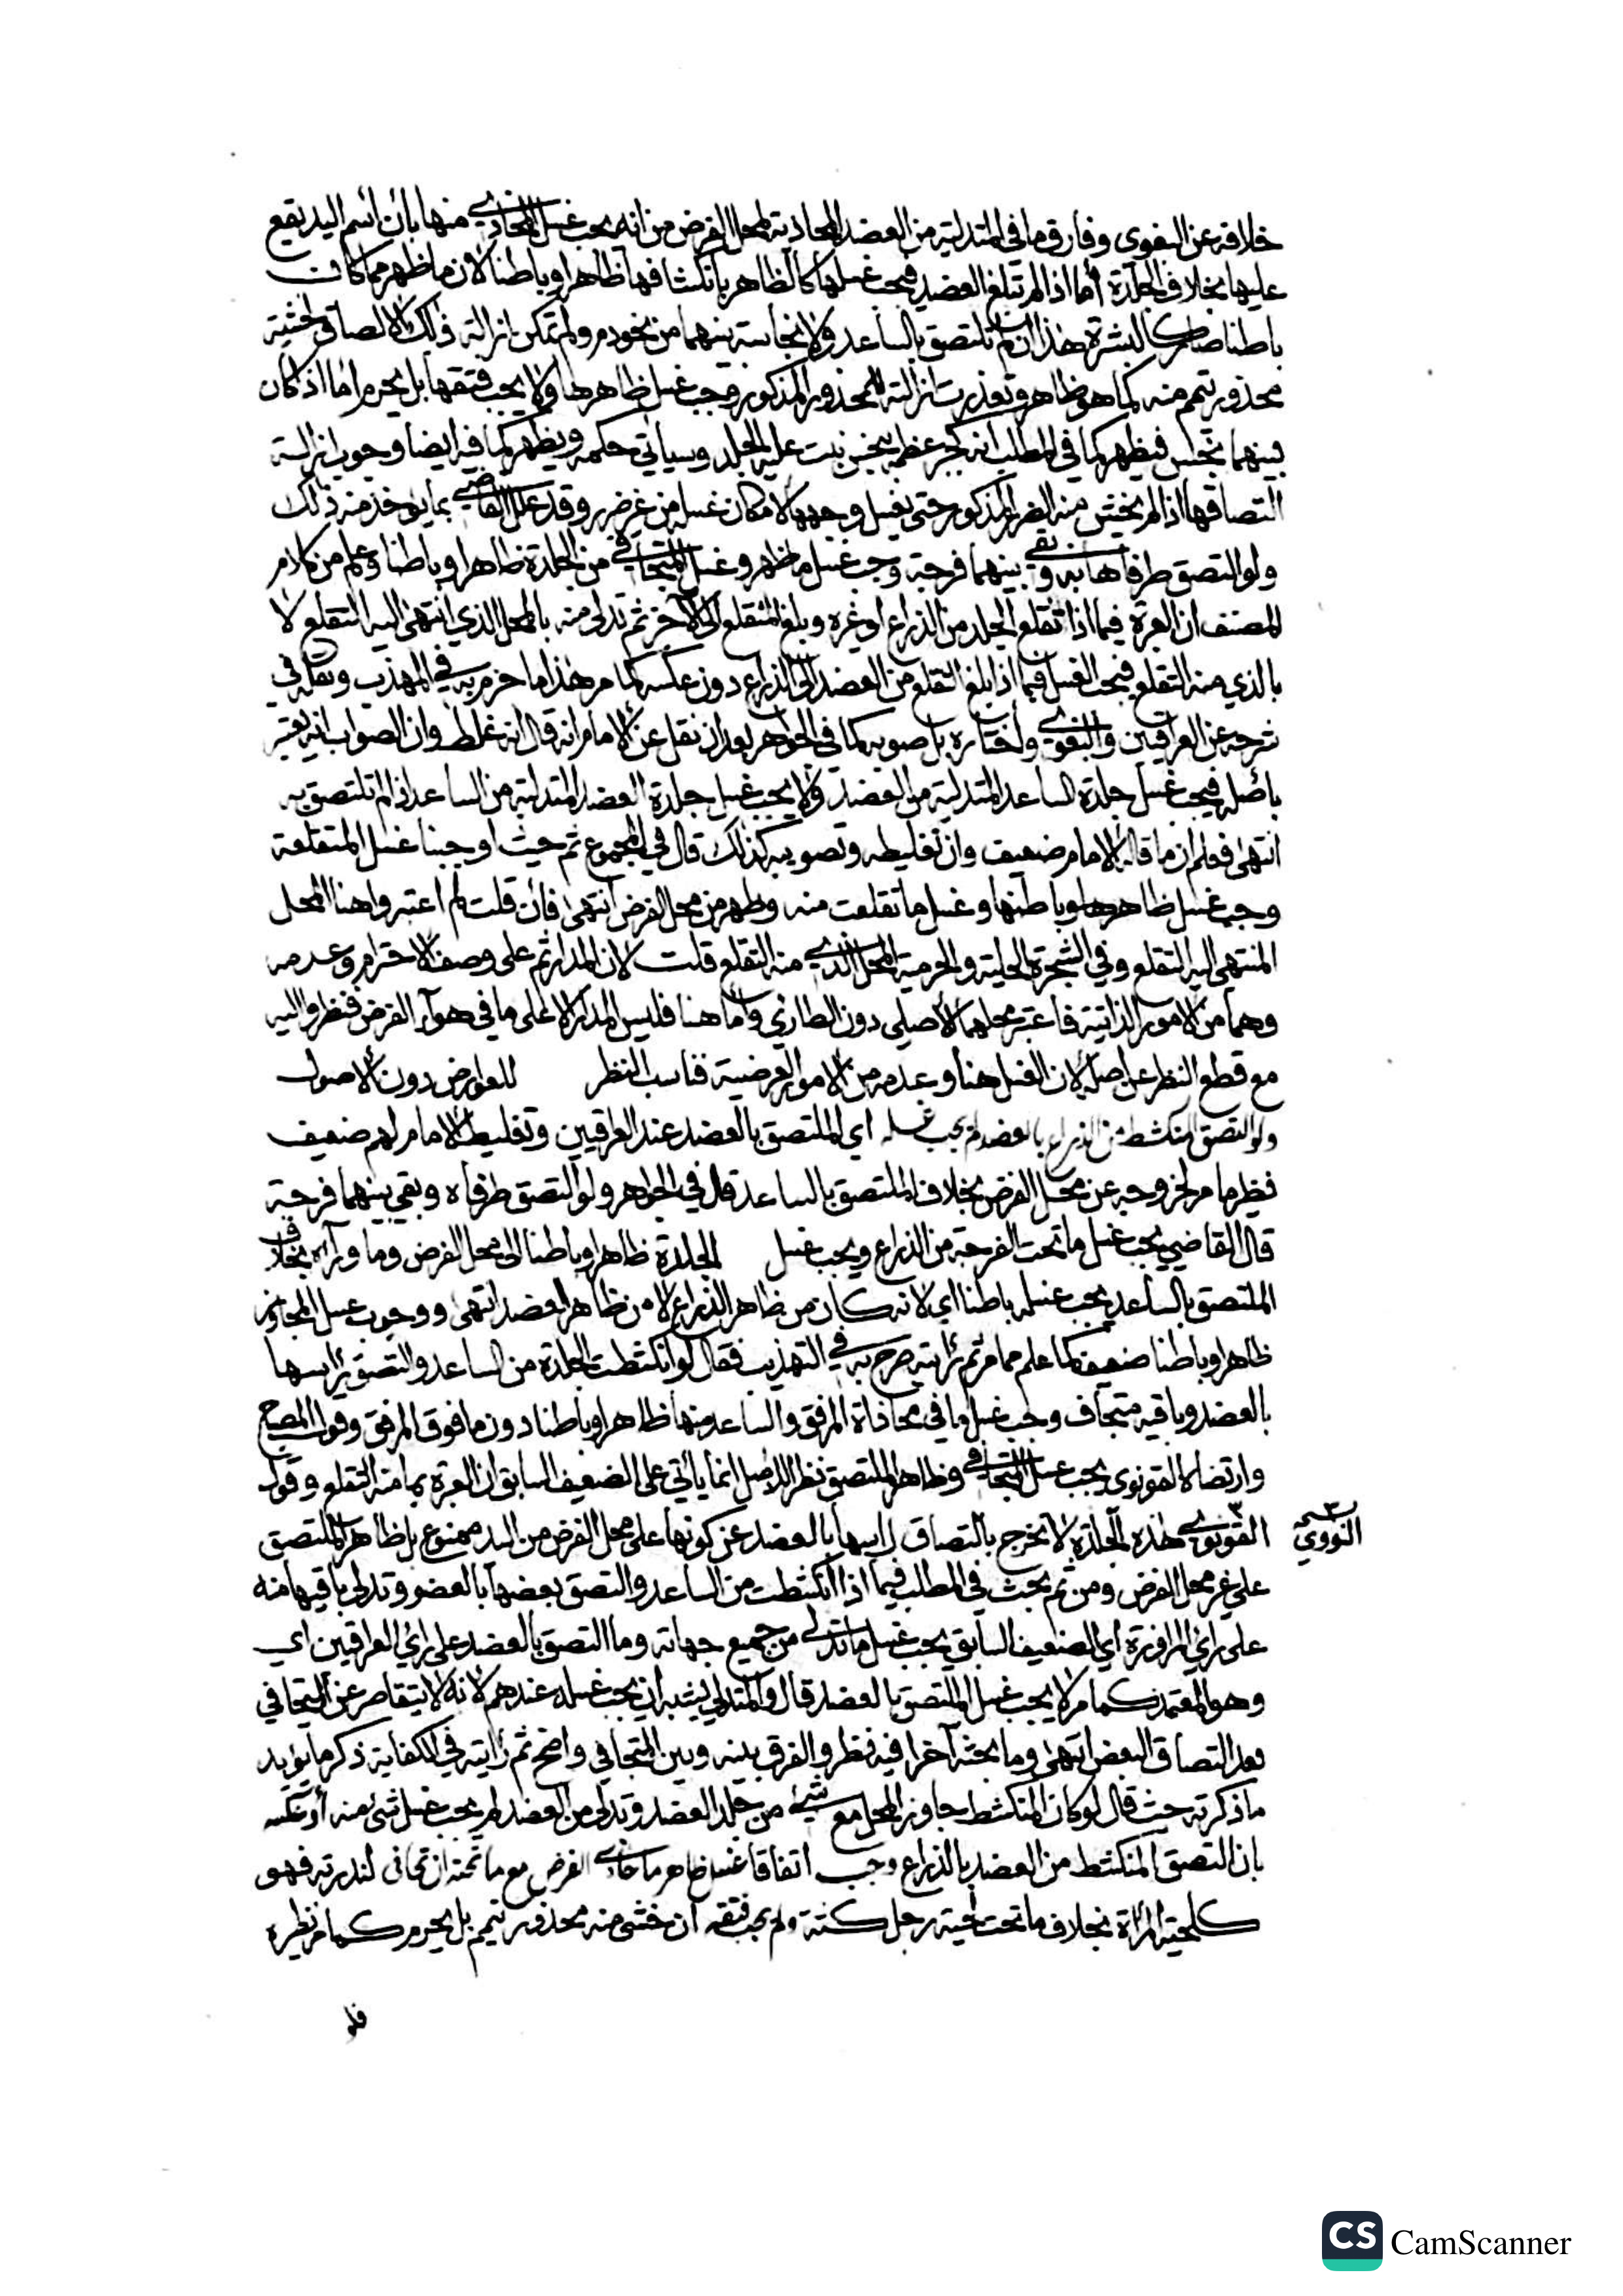 خلافه عن البغوي وفارق ما في المتدلية من العضد المحاذية لمحل الفرض من انه يجب غسل المحاذي منها بان اسم اليد يقع
عليها بخلاف الجلدة أما اذا لم تبلغ العضد فيجب غسلها كالظاهر بانكشافها ظاهرا وباطنا لان ما ظهر مما كان
باطنا صار كالبشرة هذا ان لم تلتصق بالساعد ولا نجاسة بينهما من نحو دم ولم تمكن ازالة ذلك الالصاق لخشية
محذور تيمم منه كما هو ظاهر وتعذرت ازالته للمحذور المذكور وجب غسل ظاهرها ولا يجب فتقها بل يحرم اما اذا كان
بينهما نجس فيظهر كما في المطلب انه كجبر عظمه بنجس نبت عليه الجلد وسياتي حكمه ويظهر كما فيه ايضا وجوب ازالة
التصاقها اذا لم يخش منه الضرر المذكور حتى يغسل وجهها لامكان غسله من غير ضرر وقد علل القاضي بما يؤخذ منه ذلك
ولو التصق طرفاها به وبقي بينهما فرجة وجب غسل ما ظهر وغسل المتجافي من الجلدة ظاهرا وباطنا وعلم من كلام
المصنف ان العبرة فيما اذا تقلع الجلد من الذراع او غيره وبلغ المتقلع الى الآخر ثم تدلى منه بالمحل الذي انتهى اليه التقلع لا
بالذي منه التقلع فيجب الغسل فيما اذا بلغ التقلع من العضد الى الذراع دون عكسه كما مر هذا ما جزم به في المهذب ونقله في
شرحه عن العراقيين والبغوي واختاره بل صوبه كما في الجواهر بعد ان نقل عن الامام انه قال انه غلط وان الصواب انه يعتبر
باصله فيجب غسل جلدة الساعد المتدلية من العضد ولا يجب غسل جلدة العضد المتدلية من الساعد اذا لم تلتصق به
انتهى فعلم ان ما قاله الامام ضعيف وان تغليطه وتصويبه كذلك قال في المجموع ثم حيث اوجبنا غسل المتقلعة
وجب غسل ظاهرها وباطنها وغسل ما تقلعت منه وظهر من محل الفرض انتهى فان قلت لم اعتبروا هنا المحل
المنتهى اليه التقلع وفي الشجرة الحلية والحرمية المحل الذي منه التقلع قلت لان المدار ثم على وصف الاحترام وعدمه
وهما من الامور الذاتية فاعتبر محلهما الاصلي دون الطارئ واما هنا فليس المدار الا على ما في هواء الفرض فنظروا اليه
مع قطع النظر عن اصله لان الغسل هنا وعدمه من الامور العرضية فناسب النظر للعوارض دون الاصول
ولو التصق المنكشط من الذراع بالعضد لم يجب غسله اي الملتصق بالعضد عند العراقيين وتغليط الامام لهم ضعيف
نظير ما مر لخروجه عن محل الفرض بخلاف الملتصق بالساعد قال في الجواهر ولو التصق طرفاه وبقي بينهما فرجة
قال القاضي يجب غسل ما تحت الفرجة من الذراع ويجب غسل الجلدة ظاهرا وباطنا الى محل الفرض وما وراءه بخلاف
الملتصق بالساعد يجب غسله باطنا اي لانه كان من ظاهر الذراع لا من ظاهر العضد انتهى ووجوب غسل المجاوز
ظاهرا وباطنا ضعيف كما علم مما مر ثم رايته صرح به في التهذيب فقال لو انكشطت الجلدة من الساعد والتصق راسها
بالعضد وباقيه متجاف وجب غسل ما في محاذاة المرفق والساعد منها ظاهرا وباطنا دون ما فوق المرفق وقول المصباح
وارتضاه القونوي يجب غسل المتجافي وظاهر الملتصق نظرا للاصل انما ياتي على الضعيف السابق ان العبرة بما منه التقلع وقول
القونوي هذه الجلدة لا تخرج بالتصاق راسها بالعضد عن كونها على محل الفرض من اليد ممنوع بل ظاهر الملتصق
النووي
على غير محل الفرض ومن ثم بحث في المطلب فيما اذا انكشطت من الساعد والتصق بعضها بالعضو وتدلى باقيها منه
على راي المراوزة اي الضعيف السابق يجب غسل ما تدلى من جميع جهاته وما التصق بالعضد على راي العراقيين اي
وهو المعتمد كما مر لا يجب غسل الملتصق بالعضد قال والمتدلي يشبه ان يجب غسله عندهم لانه لا يتقاصر عن المتجافي
بعد التصاق البعض انتهى وما بحثه آخرا فيه نظر والفرق بينه وبين المتجافي واضح ثم رايته في الكفاية ذكر ما يؤيد
ما ذكرته حيث قال لو كان المنكشط جاوز المحل مع شيء من جلد العضد وتدلى من العضد لم يجب غسل شيء منه او عكسه
بان التصق المنكشط من العضد بالذراع وجب اتفاقا غسل ظاهر ما حاذى الفرض مع ما تحته ان تجافى لندرته فهو
كلحية المراة بخلاف ما تحت لحية رجل كثة ولم يجب فتقه ان خشي منه محذور تيمم بل يحرم كما مر نظيره